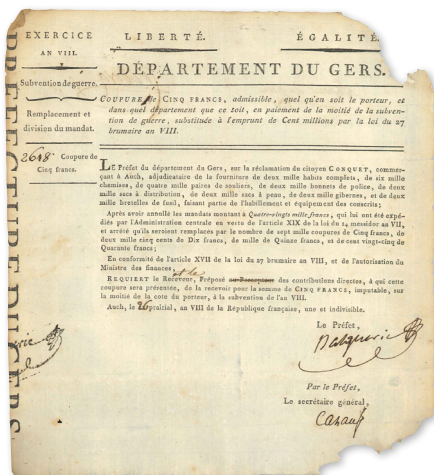 EXERCICE
AN VIII.
Subvention de guerre.
Remplacement et
division du mandat.
2618e Coupure de
Cinq francs.
LIBERTÉ. ÉGALITÉ
DÉPARTEMENT DU GERS.
COUPURE de CINQ FRANCS, admissible, quel qu'en soit le porteur, et
dans quel département que ce soit, en paiement de la moitié de la subven-
tion de guerre, substituée à l'emprunt de Cent millions par la loi du 27
brumaire an VIII.
LE Préfet du département du Gers, sur la réclamation du citoyen CONQUET, commer-
çant à Auch, adjudicataire de la fourniture de deux mille habits complets, de six mille
chemises, de quatre mille paires de souliers, de deux mille bonnets de police, de deux
mille sacs à distribution, de deux mille sacs à peau, de deux mille gibernes, et de deux
mille bretelles de fusil, faisant partie de l'habillement et équipement des conscrits;
Après avoir annullé les mandats montant à Quatre-vingts mille francs, qui lui ont été expé-
diés par l'Administration centrale en vertu de l'article XIX de la loi du 14 messidor an VII,
et arrêté qu'ils seroient remplacés par le nombre de sept mille coupures de Cinq francs, de
deux mille cinq cents de Dix francs, de mille de Quinze francs, et de cent vingt-cinq de
Quarante francs;
En conformité de l'article XVII de la loi du 27 brumaire an VIII, et de l'autorisation du
Ministre des finances,
et le
REQUIERT le Receveur, Préposé ou Percepteur des contributions directes, à qui cette
coupure sera présentée, de la recevoir pour la somme de CINQ FRANCS, imputable, sur
la moitié de la cote du porteur, à la subvention de l'an VIII.
Auch, le 26 prairial, an VIII de la République française, une et indivisible.
Le Préfet,
Balguerie
Par le Préfet,
Le secrétaire général,
PRÉFECTURE DU GERS